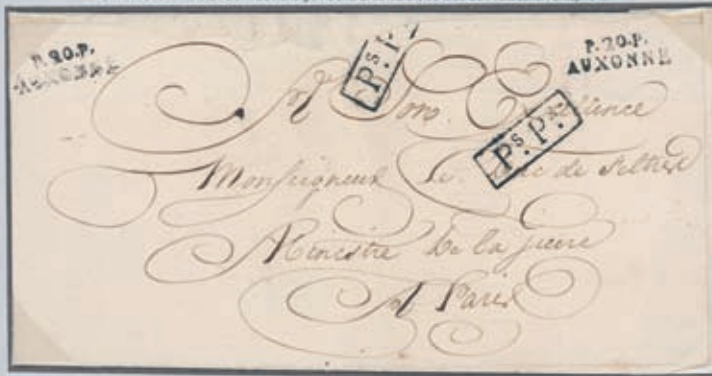 P.20.P.
AUXONNE
P.20.P.
AUXONNE
Ps. P
Ps. Ps.
A Son Excellence
Monseigneur le Duc de Feltre
Ministre De la guerre
A Paris